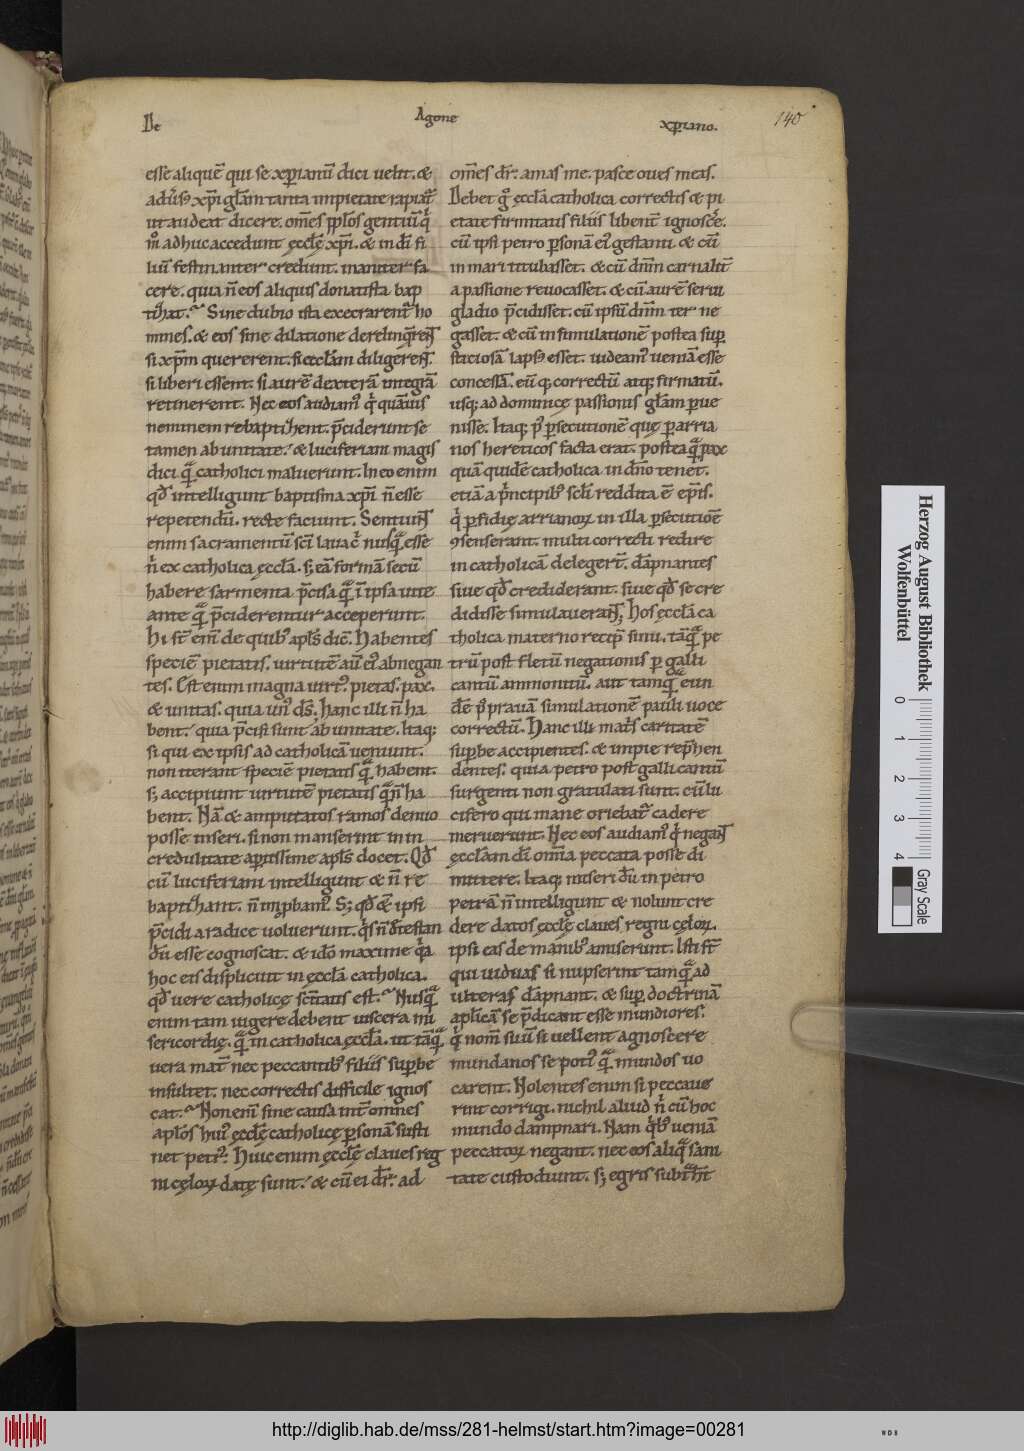 De Agone xp̄iano. 140
esse aliquē qui se xp̄ianū dici uelit. &
adūsꝰ xp̄i gl̄am tanta impietate rapiat᷑
ut audeat dicere. om̄es pp̄los gentiū q̇
m̊ adhuc accedunt ęccl̄ę xp̄i. & in dī fi
liū festinanter credunt. inaniter fa
cere. quia n̄ eos aliquis donatista bap
tizat. Sine dubio ista execrarent᷑ ho
mines. & eos sine dilatione derelinq̄rent
si xp̄m quererent. si eccl̄am diligerent.
si liberi essent. si aurē dexterā integrā
retinerent. Nec eos audiamꝰ q̇ quāuis
neminem rebaptizent. p̄ciderunt se
tamen ab unitate. & luciferiani magis
dici q̄ catholici maluerunt. In eo enim
qd̄ intelligunt baptisma xp̄i n̄ esse
repetendū. recte faciunt. Sentiunt
enim sacramentū sc̄i lauac̊ nusq̄ esse
n̊ ex catholica ęccl̄a. s; eā formā secū
habere sarmenta p̄cisa q̄ ī ipsa uite
ante q̄ p̄ciderentur acceperunt.
Hi st̄ eni̅ de quibꝰ apl̄s dic̄. Habentes
speciē pietatis. uirtutē aū eiꝰ abnegan
tes. Est enim magna uirtꝰ pietas. pax.
& unitas. quia unꝰ ds̄. Hanc illi n̄ ha
bent. quia p̄cisi sunt ab unitate. Itaq;
si qui ex ipsis ad catholicā ueniunt.
non iterant speciē pietatis q̄ habent.
s; accipiunt uirtutē pietatis q̄ n̄ ha
bent. Nā & amputatos ramos denuo
posse inseri. si non manserint in in
credulitate apertissime apl̄s docet. Qd̄
cū luciferiani intelligunt & n̄ re
baptizant. n̄ īprobamꝰ. S; qd̄ & ipsi
p̄cidi a radice uoluerunt. q̇s n̄ detestan
dū esse cognoscat. & idō maxime q̇a
hoc eis displicuit in ęccl̄a catholica.
qd̄ uere catholicę sc̄itatis est. Nusq̄
enim tam uigere debent uiscera mi
sericordię. q̄ in catholica ęccl̄a. ut tāq̄
uera mat̄ nec peccantibꝰ filiis supbe
insultet. nec correctis difficile ignos
cat. Non eni̅ sine causa int̄ omnes
apl̄os huiꝰ ęccl̄ę catholicę psonā susti
net petrꝰ. Huic enim ęccl̄ę claues reg
ni cęloꝝ datę sunt. & cū ei dr̄. ad
om̄es dr̄. amas me. pasce oues meas.
Debet ḡ ęccl̄a catholica correctis & pi
etate firmitatis filiis libent̄ ignosc̄e.
cū ipsi petro psonā eiꝰ gestanti. & cū
in mari titubasset. & cū dn̄m carnalit̄
a passione reuocasset. & cū aurē serui
gladio p̄cidisset. cū ipsū dn̄m ter ne
gasset. & cū in simulationē postea sup
sticiosā lapsꝰ esset. uideamꝰ ueniā esse
concessā. eū q; correctū atq; firmatū.
usq; ad dominicę passionis gl̄am pue
nisse. Itaq; pꝰ psecutionē quę p arria
nos hereticos facta erat. postea q̄ pax
quā quidē catholica in dn̄o tenet.
etiā a p̄ncipibꝰ scl̄i reddita ē ep̄is.
q̇ pfidię arrianoꝝ in illa psecutiōe
ꝯsenserant. multi correcti redire
in catholicā delegert̄. dāpnantes
siue qd̄ crediderant. siue qd̄ se cre
didisse simulauerant; Hos ęccl̄a ca
tholica materno recep̄ sinu. tāq̄ pe
trū post fletū negationis p galli
cantū ammonitū. aut tamq̄ eun
dē p̄ prauā simulationē pauli uoce
correctū. Hanc illi mat̄s caritatē
supbe accipientes. & impie rep̄hen
dentes. quia petro post galli cantū
surgenti non gratulati sunt. cū lu
cifero qui mane oriebat᷑ cadere
meruerunt. Nec eos audiamꝰ q̇ negant
ęccl̄am dī om̄ia peccata posse di
mittere. Itaq; miseri dū in petro
petrā n̄ intelligunt & nolunt cre
dere datos ęccl̄ę claues regni cęloꝝ.
ipsi eas de manibꝰ amiserunt. Isti st̄
qui uiduas si nupserint tamq̄ ad
ulteras dāpnant. & sup doctrinā
apl̄icā se p̄dicant esse mundiores.
q̇ nom̄ suū si uellent agnoscere
mundanos se potꝰ q̄ mundos uo
carent. Nolentes enim si peccaue
rint corrigi. nichil aliud n̊ cū hoc
mundo dampnari. Nam q̇bꝰ ueniā
peccatoꝝ negant. nec eos aliq̄ sani
tate custodiunt. s; egris subt̄hūt
Herzog August Bibliothek
Wolfenbüttel
0 1 2 3 4
Gray Scale
http://diglib.hab.de/mss/281-helmst/start.htm?image=00281